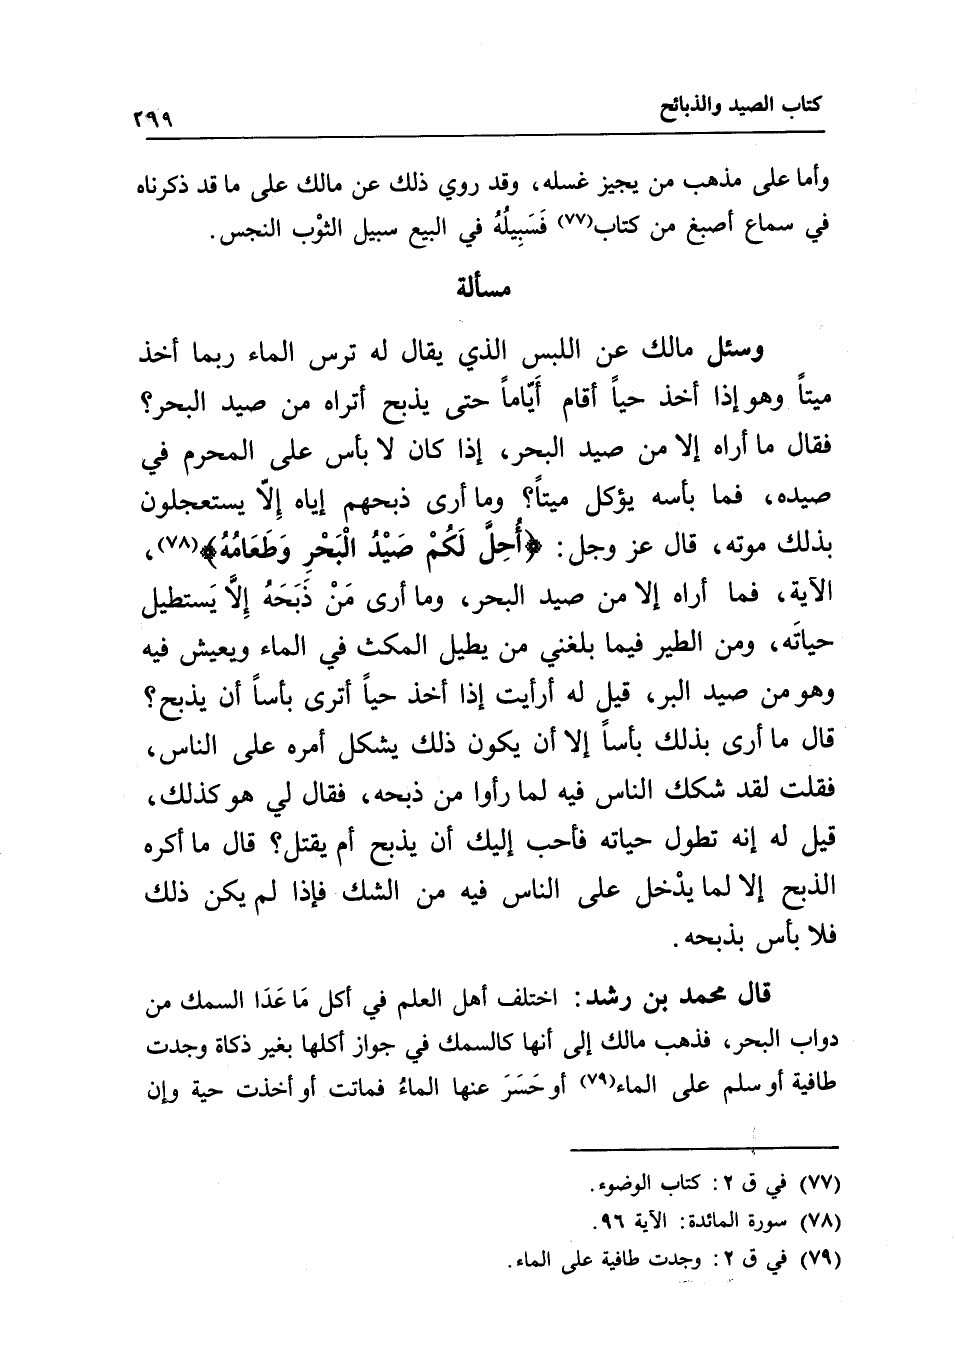 كتاب الصيد والذبائح
٢٩٩
وأما على مذهب من يجيز غسله، وقد روي ذلك عن مالك على ما قد ذكرناه
في سماع أصبغ من كتاب(٧٧) فَسَبِيلُهُ في البيع سبيل الثوْب النجس.
مسألة
وسئل مالك عن اللبس الذي يقال له ترس الماء ربما أخذ
ميتاً وهو إذا أخذ حياً أقام أَيَّاماً حتى يذبح أتراه من صيد البحر؟
فقال ما أراه إلا من صيد البحر، إذا كان لا بأس على المحرم في
صيده، فما بأسه يؤكل ميتاً؟ وما أرى ذبحهم إياه إلّا يستعجلون
بذلك موته، قال عز وجل: ﴿أُحِلَّ لَكُمْ صَيْدُ الْبَحْرِ وَطَعَامُهُ﴾(٧٨)،
الآية، فما أراه إلا من صيد البحر، وما أرى مَنْ ذَبَحَهُ إِلَّا يَستطيل
حياتَه، ومن الطير فيما بلغني من يطيل المكث في الماء ويعيش فيه
وهو من صيد البر، قيل له أرأيت إذا أخذ حياً أترى بأساً أن يذبح؟
قال ما أرى بذلك بأساً إلا أن يكون ذلك يشكل أمره على الناس،
فقلت لقد شكك الناس فيه لما رأوا من ذبحه، فقال لي هو كذلك،
قيل له إنه تطول حياته فأحب إليك أن يذبح أم يقتل؟ قال ما أكره
الذبح إلا لما يدْخل على الناس فيه من الشك فإذا لم يكن ذلك
فلا بأس بذبحه.
قال محمد بن رشد: اختلف أهل العلم في أكل مَا عَدَا السمك من
دواب البحر، فذهب مالك إلى أنها كالسمك في جواز أكلها بغير ذكاة وجدت
طافية أو سلم على الماء(٧٩) أو حَسَرَ عنها الماءُ فماتت أو أخذت حية وإن
(٧٧) في ق ٢: كتاب الوضوء.
(٧٨) سورة المائدة: الآية ٩٦.
(٧٩) في ق ٢: وجدت طافية على الماء.